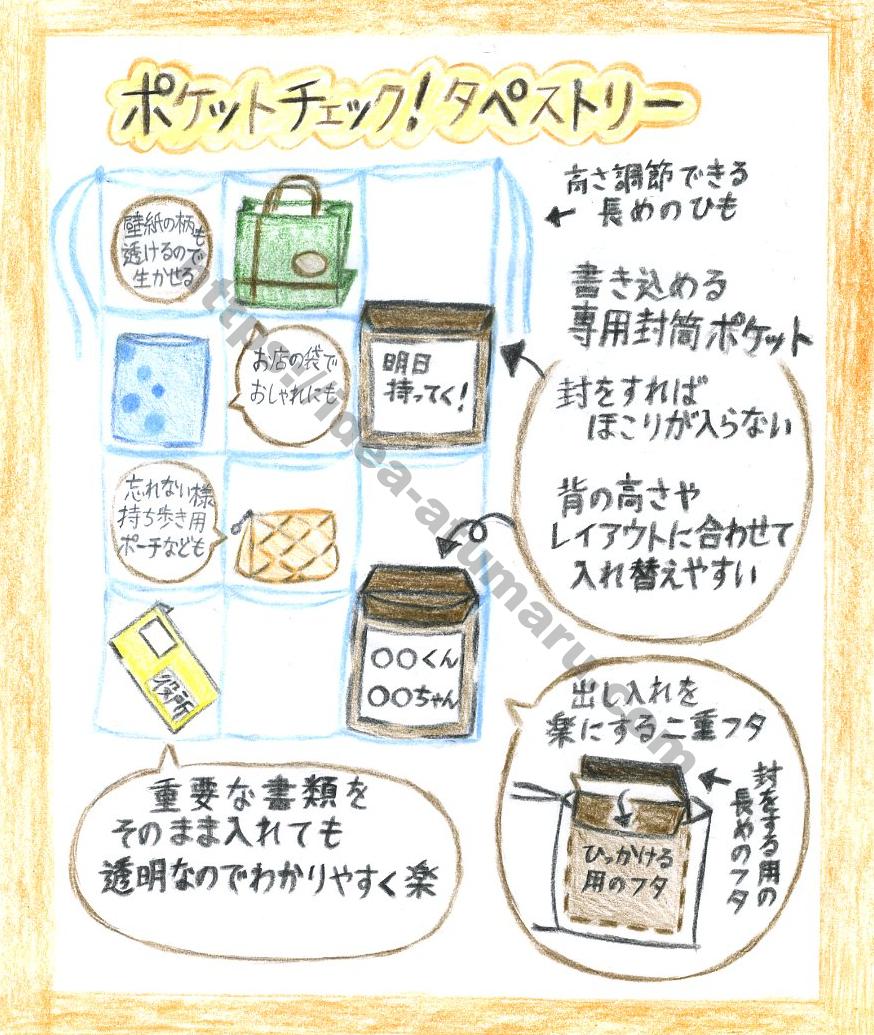 ポケットチェック!タペストリー
高さ調節できる
長めのひも
壁紙の柄も
透けるので
生かせる
書き込める
専用封筒ポケット
お店の袋で
おしゃれにも
明日
持ってく!
封をすれば
ほこりが入らない
忘れない様
持ち歩き用
ポーチなども
背の高さや
レイアウトに合わせて
入れ替えやすい
〇〇くん
〇〇ちゃん
役所
出し入れを
楽にする二重フタ
封をする用の
長めのフタ
ひっかける
用のフタ
重要な書類を
そのまま入れても
透明なのでわかりやすく楽
https://idea-atumaru.com